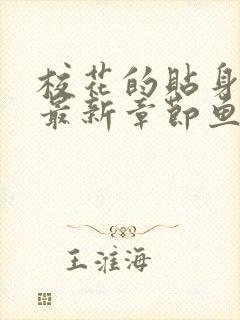 校花的贴身
最新章节鱼
王淮海